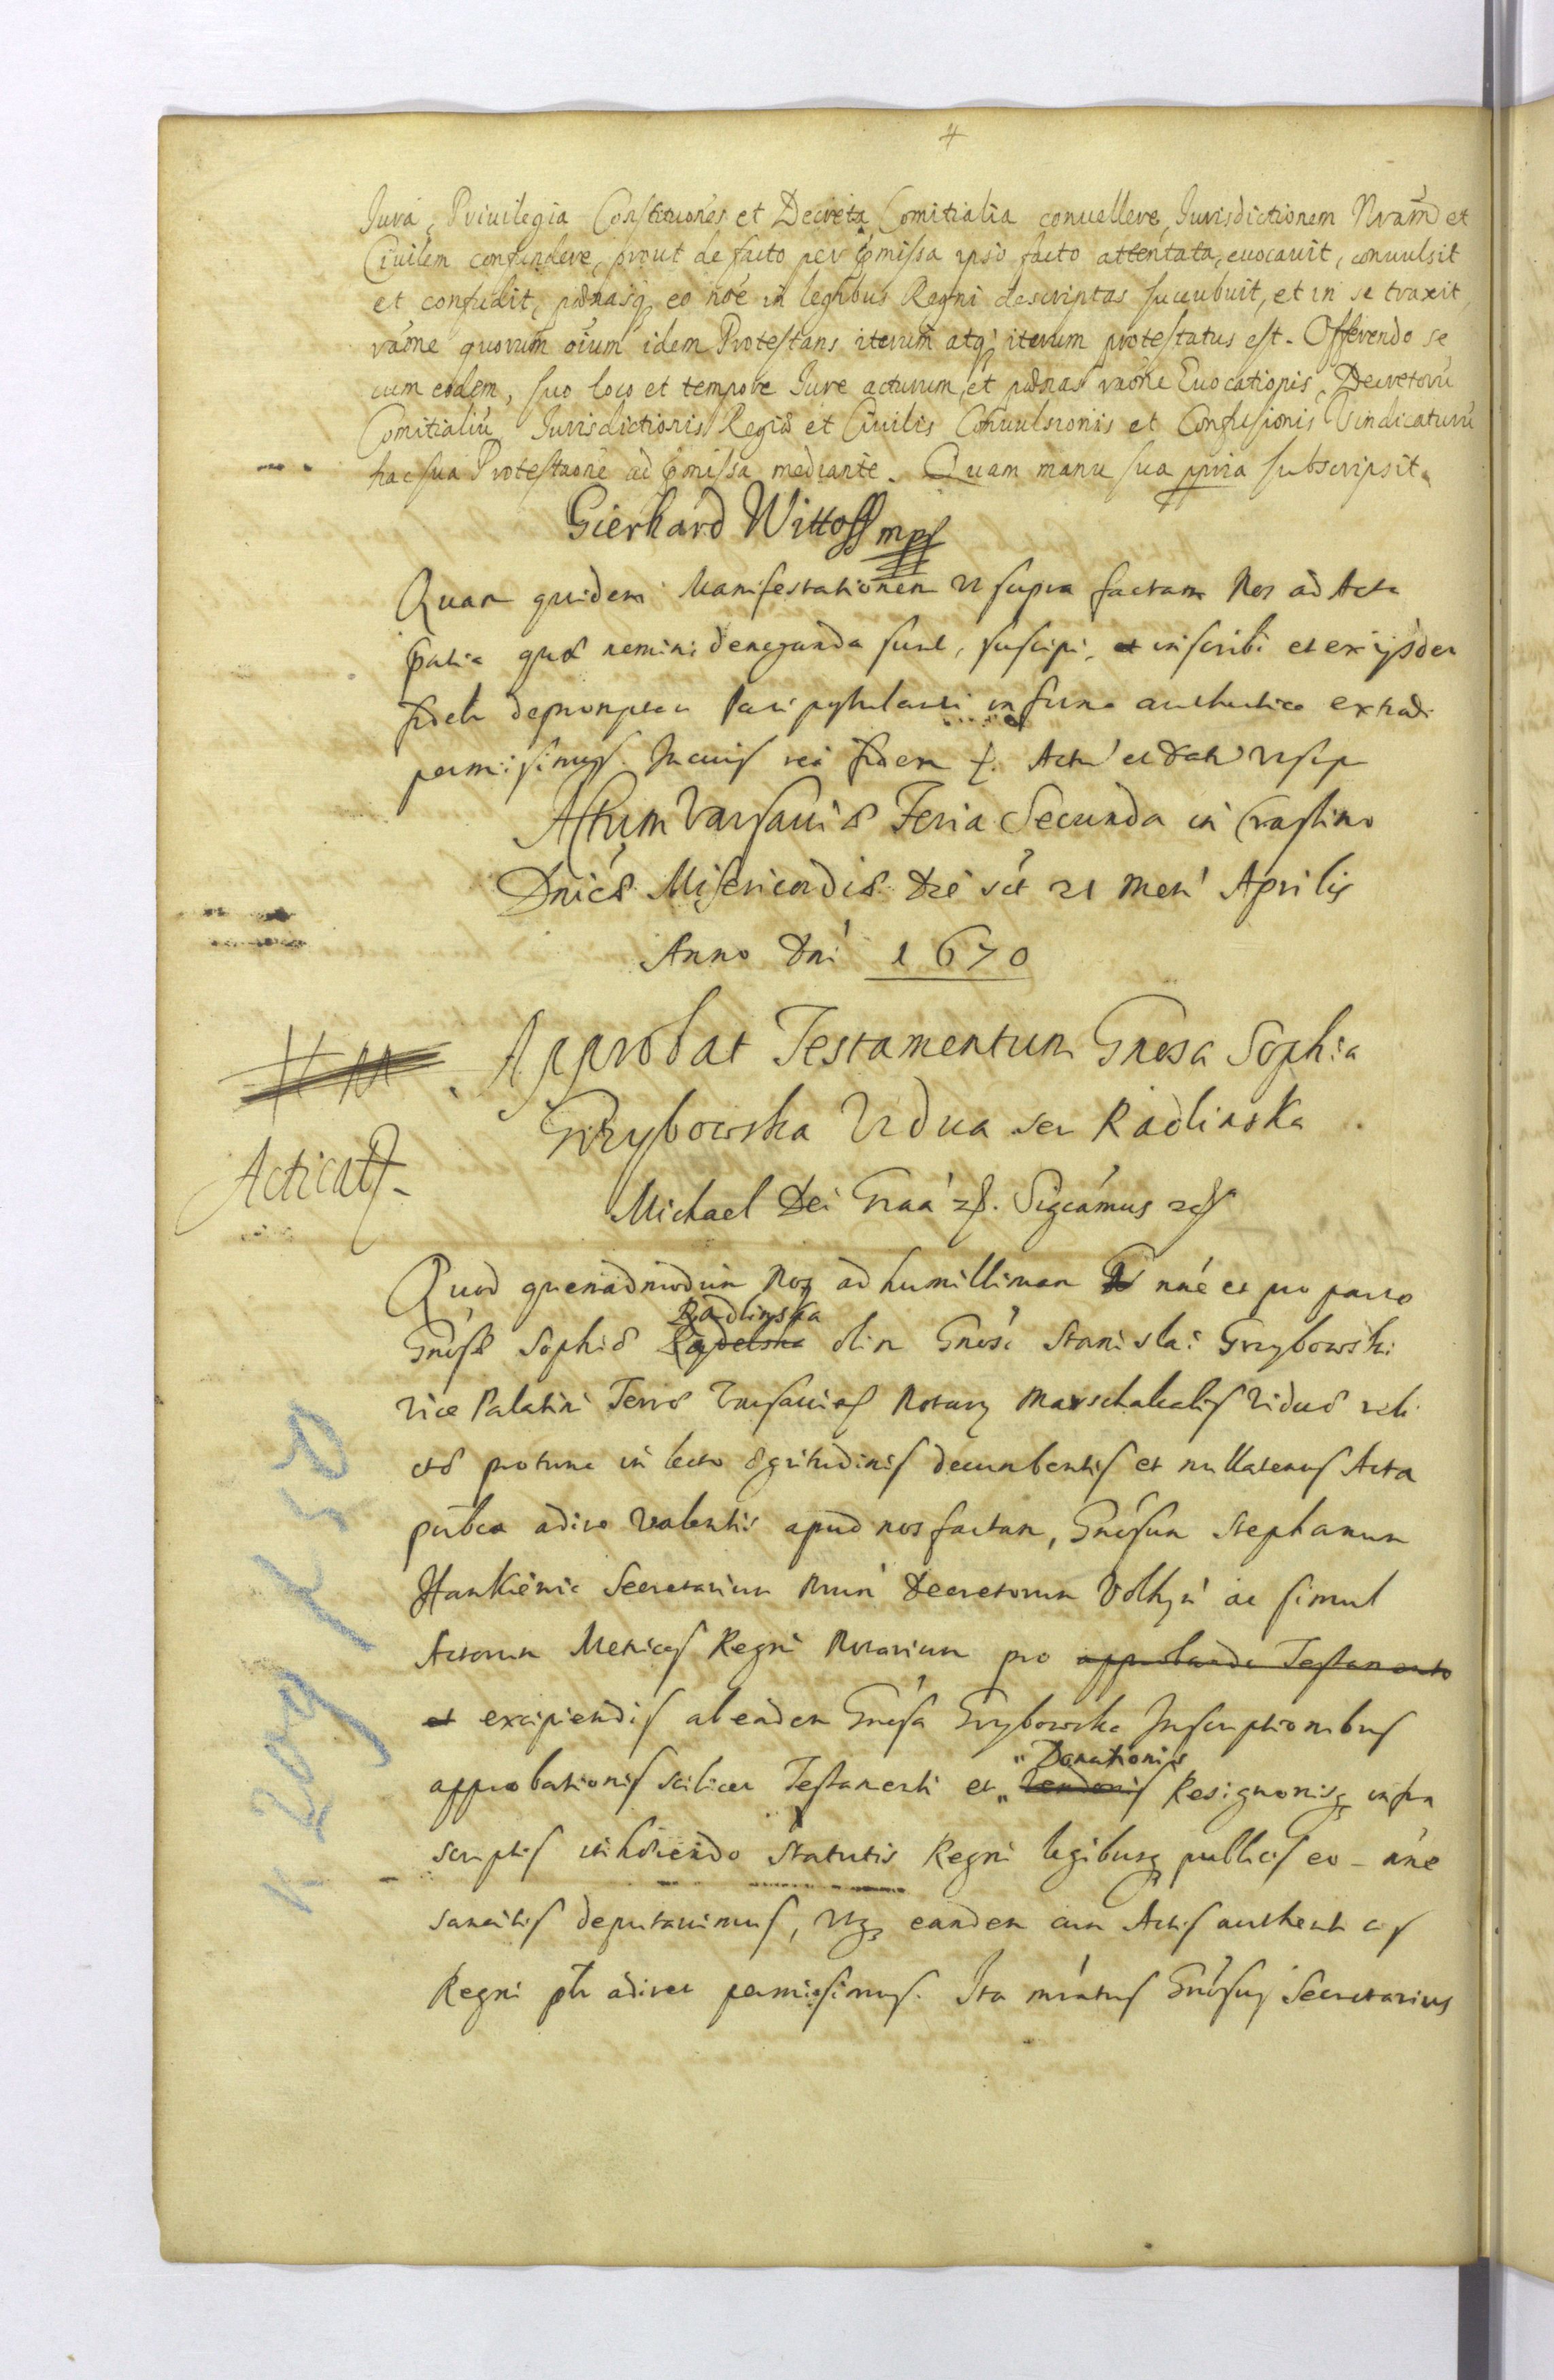 4
Jura, Priuilegia Constituones et Decreta Comitialia conuellere, Jurisdictionem Nram et
Ciuilem confundere, prout de facto per pmissa ipso facto attentata, euocauit, conuulsit
et confudit, pænasq eo noe in legibus Regni descriptas succubuit, et in se traxit,
raone quorum oium idem Protestans iterum atq iterum protestatus est. Offerendo se
cum eodem, suo loco et tempore Jure acturum, et pænas raone Euocationis, Decretorū
Comitialiū Jurisdictionis Regiæ et Ciuilis Conuulsionis et Confusionis Vindicaturū
hac sua Protestaone ad pmissa mediante. Quam manu sua ppria subscripsit.
Gierhard Wittoff mpp
Quam quidem Manifestationem ut supra factam Nos ad Acta
pntia quæ nemini deneganda sunt, suscipi, et inscribi et ex ijsdem
fideli depromptam Pari pstulanti in forma authentica extradi
permisimus. In cuius rei fidem &. Actū et Datū ut sup
Actum Varsauiæ Feria Secunda in Crastino
Dnicæ Misericordiæ Die sct 21 Men Aprilis
Anno Dni 1670
Approbat Testamentum Gnosa Sophia
Grzybowska Vidua seu Radlinska
Acticatt
Michael Dei Graa &. Sigcamus &
Quod quemadmodum Nos ad humillimam nne et pro parte
Radlinska
Gnosæ Sophiæ olim Gnosi Stanislai Grzybowski
Vice Palatini Terræ Varsauien Notarij Marschalcalis Viduæ reli
ctæ protunc in lecto ægritudinis decumbentis et nullatenus Acta
publca adire valentis apud nos factam, Gnosum Stephanum
Hankiewic Secretarium Nrum Decretorum Volhyn ac simul
Actorum Metrices Regni Notarium pro approbando Testamento
et excipiendis ab eadem Gnosa Grzybowska Inscriptionibus
Donationis
approbationis scilicet Testamenti et Resignonisq infra
scriptis inhærendo Statutis Regni legibusq publicis eo-nne
sancitis deputauimus, utq eandem cum Actis authenticis
Regni adiret permisimus. Ita mratus Gnosus Secretarius